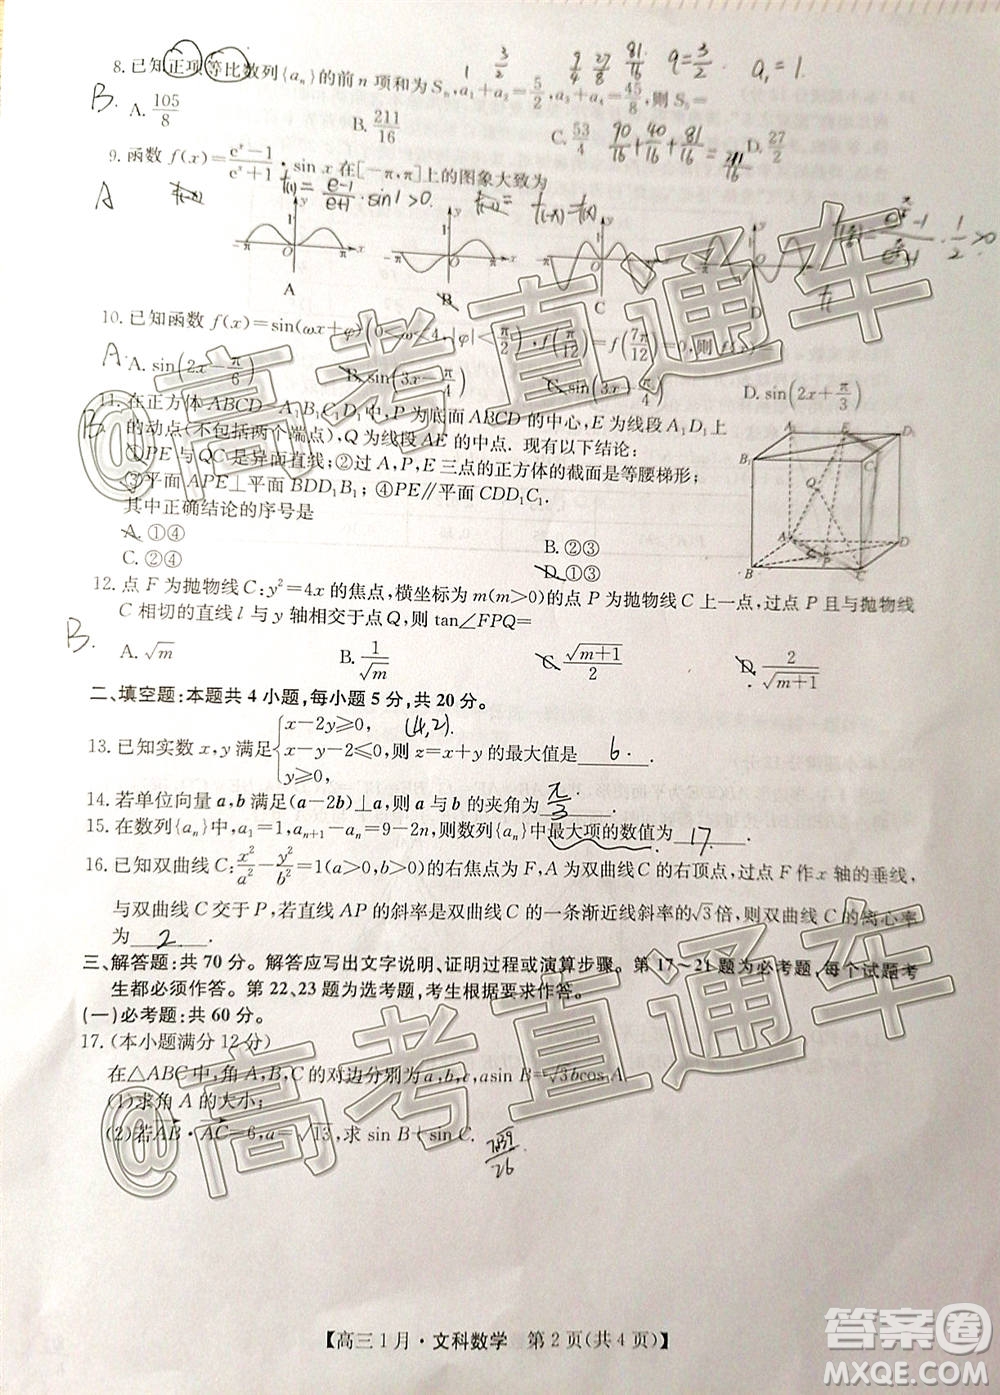 1 3/2 9/4 27/8 81/16 q=3/2 a₁=1.
8.已知正项等比数列{aₙ}的前n项和为Sₙ,a₁+a₂=5/2,a₃+a₄=45/8,则S₅=
B.
A. 105/8 B. 211/16 C. 53/4 D. 27/2
90/16+40/16+81/16=211/16
9.函数f(x)=(eˣ-1)/(eˣ+1)·sin x在[-π,π]上的图象大致为
A f(1)=(e-1)/(e+1)·sin1>0. f(-x)=f(x)
A B C D
10.已知函数f(x)=sin(ωx+φ)(0<ω<4,|φ|<π/2),f(π/12)=f(7π/12)=0,则f(x)=
A.
A. sin(2x-π/6) B. sin(3x-π/4) C. sin(3x+π/4) D. sin(2x+π/3)
11.在正方体ABCD-A₁B₁C₁D₁中,P为底面ABCD的中心,E为线段A₁D₁上
B.
的动点(不包括两个端点),Q为线段AE的中点.现有以下结论:
①PE与QC是异面直线;②过A,P,E三点的正方体的截面是等腰梯形;
③平面APE⊥平面BDD₁B₁;④PE∥平面CDD₁C₁.
其中正确结论的序号是
A.①④ B.②③
C.②④ D.①③
A₁ E D₁ B₁ C₁ Q A D P B C
12.点F为抛物线C:y²=4x的焦点,横坐标为m(m>0)的点P为抛物线C上一点,过点P且与抛物线
C相切的直线l与y轴相交于点Q,则tan∠FPQ=
B.
A. √m B. 1/√m C. √(m+1)/2 D. 2/√(m+1)
二、填空题:本题共4小题,每小题5分,共20分。
13.已知实数x,y满足{x-2y≥0, x-y-2≤0, y≥0,则z=x+y的最大值是 6 .
(4,2).
14.若单位向量a,b满足(a-2b)⊥a,则a与b的夹角为 π/3 .
15.在数列{aₙ}中,a₁=1,aₙ₊₁-aₙ=9-2n,则数列{aₙ}中最大项的数值为 17 .
16.已知双曲线C:x²/a²-y²/b²=1(a>0,b>0)的右焦点为F,A为双曲线C的右顶点,过点F作x轴的垂线,
与双曲线C交于P,若直线AP的斜率是双曲线C的一条渐近线斜率的√3倍,则双曲线C的离心率
为 2 .
三、解答题:共70分。解答应写出文字说明、证明过程或演算步骤。第17~21题为必考题,每个试题考
生都必须作答。第22、23题为选考题,考生根据要求作答。
(一)必考题:共60分。
17.(本小题满分12分)
在△ABC中,角A,B,C的对边分别为a,b,c,asin B=√3bcos A.
(1)求角A的大小;
(2)若AB·AC=6,a=√13,求sin B+sin C.
7√39/26
@高考直通车
@高考直通车
【高三1月·文科数学 第2页(共4页)】
答案圈
MXQE.COM